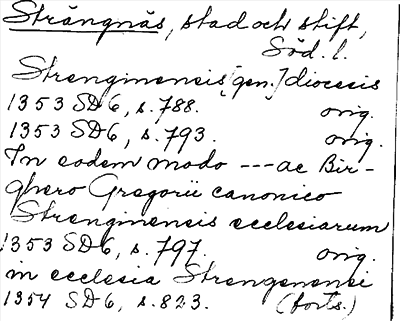 Strängnäs, stad och stift,
Söd. l.
Strenginensis [gen.] diocesis
1353 SD 6, s. 788. orig.
1353 SD 6, s. 793. orig.
In eodem modo --- ac Bir-
ghero Gregorii canonico
Strenginensis ecclesiarum
1353 SD 6, s. 797. orig.
in ecclesia Strengenensi
1354 SD 6, s. 823. (forts.)